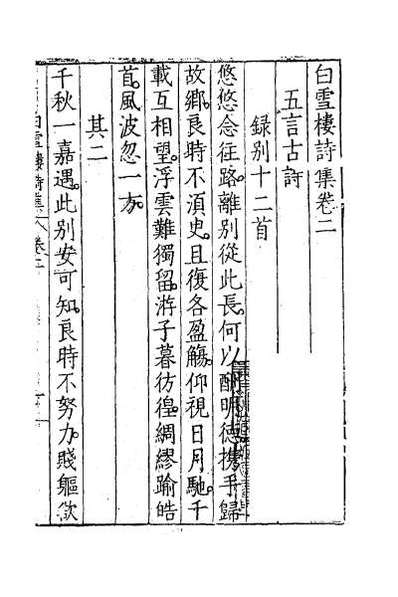 白雪樓詩集卷二
五言古詩
録别十二首
悠悠念往路離别從此長何以酬明德携手歸
故鄉良時不湏史且復各盈觴仰視日月馳千
載互相望浮雲難獨留游子暮彷徨綢繆踰皓
首風波忽一方
其二
千秋一嘉遇此别安可知良時不努力賤軀欻
白雪樓詩集卷二